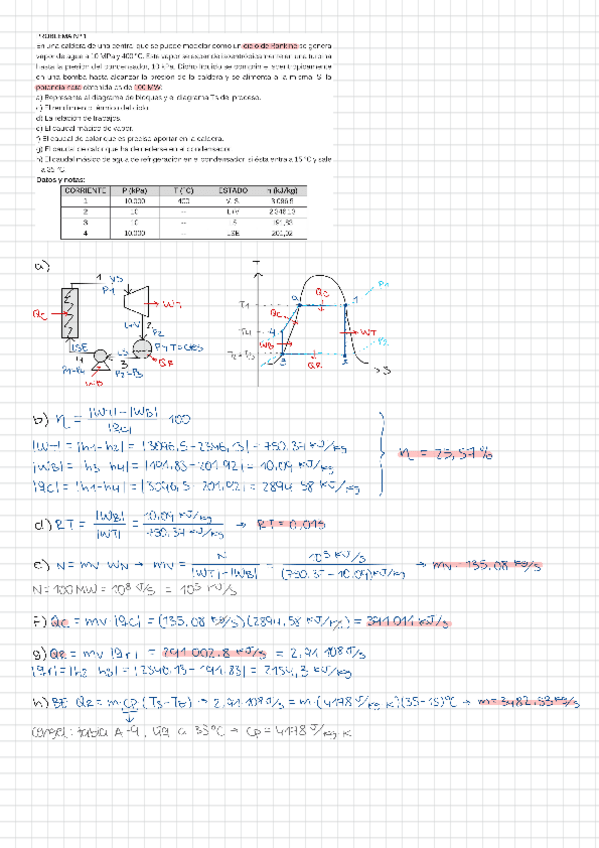 PROBLEMA Nº1
En una caldera de una central que se puede modelar como un ciclo de Rankine se genera
vapor de agua a 10 MPa y 400 ºC. Este vapor se expande isentrópicamente en una turbina
hasta la presión del condensador, 10 kPa. Dicho líquido se comprime isentrópicamente
en una bomba hasta alcanzar la presión de la caldera y se alimenta a la misma. Si la
potencia neta obtenida es de 100 MW:
a) Represente el diagrama de bloques y el diagrama Ts del proceso.
El rendimiento térmico del ciclo.
d) La relación de trabajos.
e) El caudal másico de vapor.
f) El caudal de calor que es preciso aportar en la caldera.
g) El caudal de calor que ha de cederse en el condensador.
h) El caudal másico de agua de refrigeración en el condensador si ésta entra a 15 ºC y sale
a 35 ºC.
Datos y notas:
CORRIENTE P (kPa) T (ºC) ESTADO h (kJ/kg)
1 10.000 400 V.S. 3.096,5
2 10 -- L+V 2.346,13
3 10 -- LS 191,83
4 10.000 -- LSE 201,92
a)
1 VS
P1
QC
WT
L+V 2
P2
LSE
4
LS
3
P2=P3
P1=P4
WB
QR
T
T1
T4
QC
QC
WB
WT
QR
P1
P2
S
b) η = |WT|-|WB| / |qc| · 100
|WT| = |h1-h2| = |3096,5-2346,13| = 750,37 kJ/kg
|WB| = |h3-h4| = |191,83-201,92| = 10,09 kJ/kg
|qc| = |h1-h4| = |3096,5-201,92| = 2894,58 kJ/kg
η = 25,57 %
d) RT = |WB| / |WT| = 10,09 kJ/kg / 750,37 kJ/kg → RT = 0,013
e) N = mv · WN → mv = N / |WT|-|WB| = 10⁵ kJ/s / (750,37-10,09) kJ/kg → mv = 135,08 kg/s
N = 100 MW = 10⁸ J/s = 10⁵ kJ/s
f) QC = mv · |qc| = (135,08 kg/s)(2894,58 kJ/kg) = 391.011 kJ/s
g) QR = mv · |qr| = 291.002,8 kJ/s = 2,91·10⁸ J/s
|qr| = |h2-h3| = |2346,13-191,83| = 2154,3 kJ/kg
h) BE QR = m·Cp (Ts-TE) → 2,91·10⁸ J/s = m·(4178 J/kg K)(35-15)ºC → m = 3482,53 kg/s
tabla A-9, liq a 35ºC → Cp = 4178 J/kg K